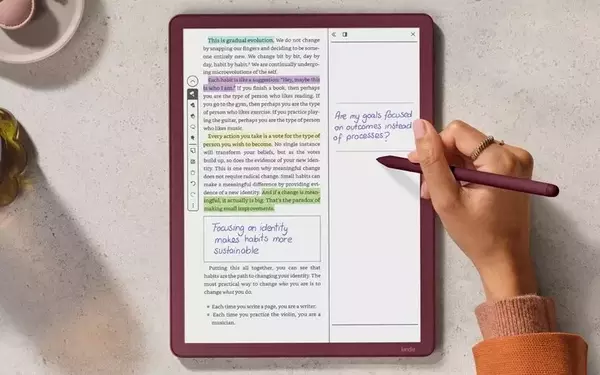 This is gradual evolution. We do not change
by snapping our fingers and deciding to be some-
one entirely new. We change bit by bit, day by
day, habit by habit. We are continually undergo-
ing microevolutions of the self.
Each habit is like a suggestion: "Hey, maybe this
is who I am." If you finish a book, then perhaps
you are the type of person who likes reading. If
you go to the gym, then perhaps you are the type
of person who likes exercise. If you practice play-
ing the guitar, perhaps you are the type of person
who likes music.
Every action you take is a vote for the type of
person you wish to become. No single instance
will transform your beliefs, but as the votes
build up, so does the evidence of your new iden-
tity. This is one reason why meaningful change
does not require radical change. Small habits can
make a meaningful difference by providing evi-
dence of a new identity. And if a change is mean-
ingful, it actually is big. That's the paradox of
making small improvements.
Focusing on identity
makes habits more
sustainable
Putting this all together, you can see that
habits are the path to changing your identity. The
most practical way to change who you are is to
change what you do.
Each time you write a page, you are a writer.
Each time you practice the violin, you are a
musician.
Are my goals focused
on outcomes instead
of processes?
kindle